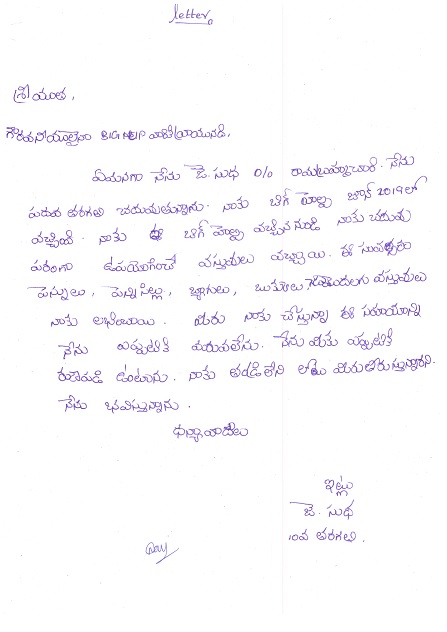 letter
శ్రీయుత,
గౌరవనీయులైన BIG HELP వారికి వ్రాయునది,
ఏమనగా నేను జె. సుధ D/o రామబ్రహ్మచారి. నేను
పదవ తరగతి చదువుతున్నాను. నాకు బిగ్ హెల్ప్ జూన్ 2019లో
వచ్చింది. నాకు ఈ బిగ్ హెల్ప్ వచ్చిన నుండి నాకు చదువు
పరంగా ఉపయోగించే వస్తువులు వచ్చాయి. ఈ సంవత్సరం
పెన్నులు, పెన్సిల్లు, బ్యాగులు, బుక్‌లు, మొదలగు వస్తువులు
నాకు లభించాయి. మీరు నాకు చేస్తున్నా ఈ సహాయాన్ని
నేను ఎప్పటికి మరువలేను. నేను మీకు ఎప్పటికి
రుణపడి ఉంటాను. నాకు తండ్రిలేని లోటు మీరు తీరుస్తున్నారని.
నేను భావిస్తున్నాను.
ధన్యావాదాలు
ఇట్లు
జె. సుధ
10వ తరగతి.